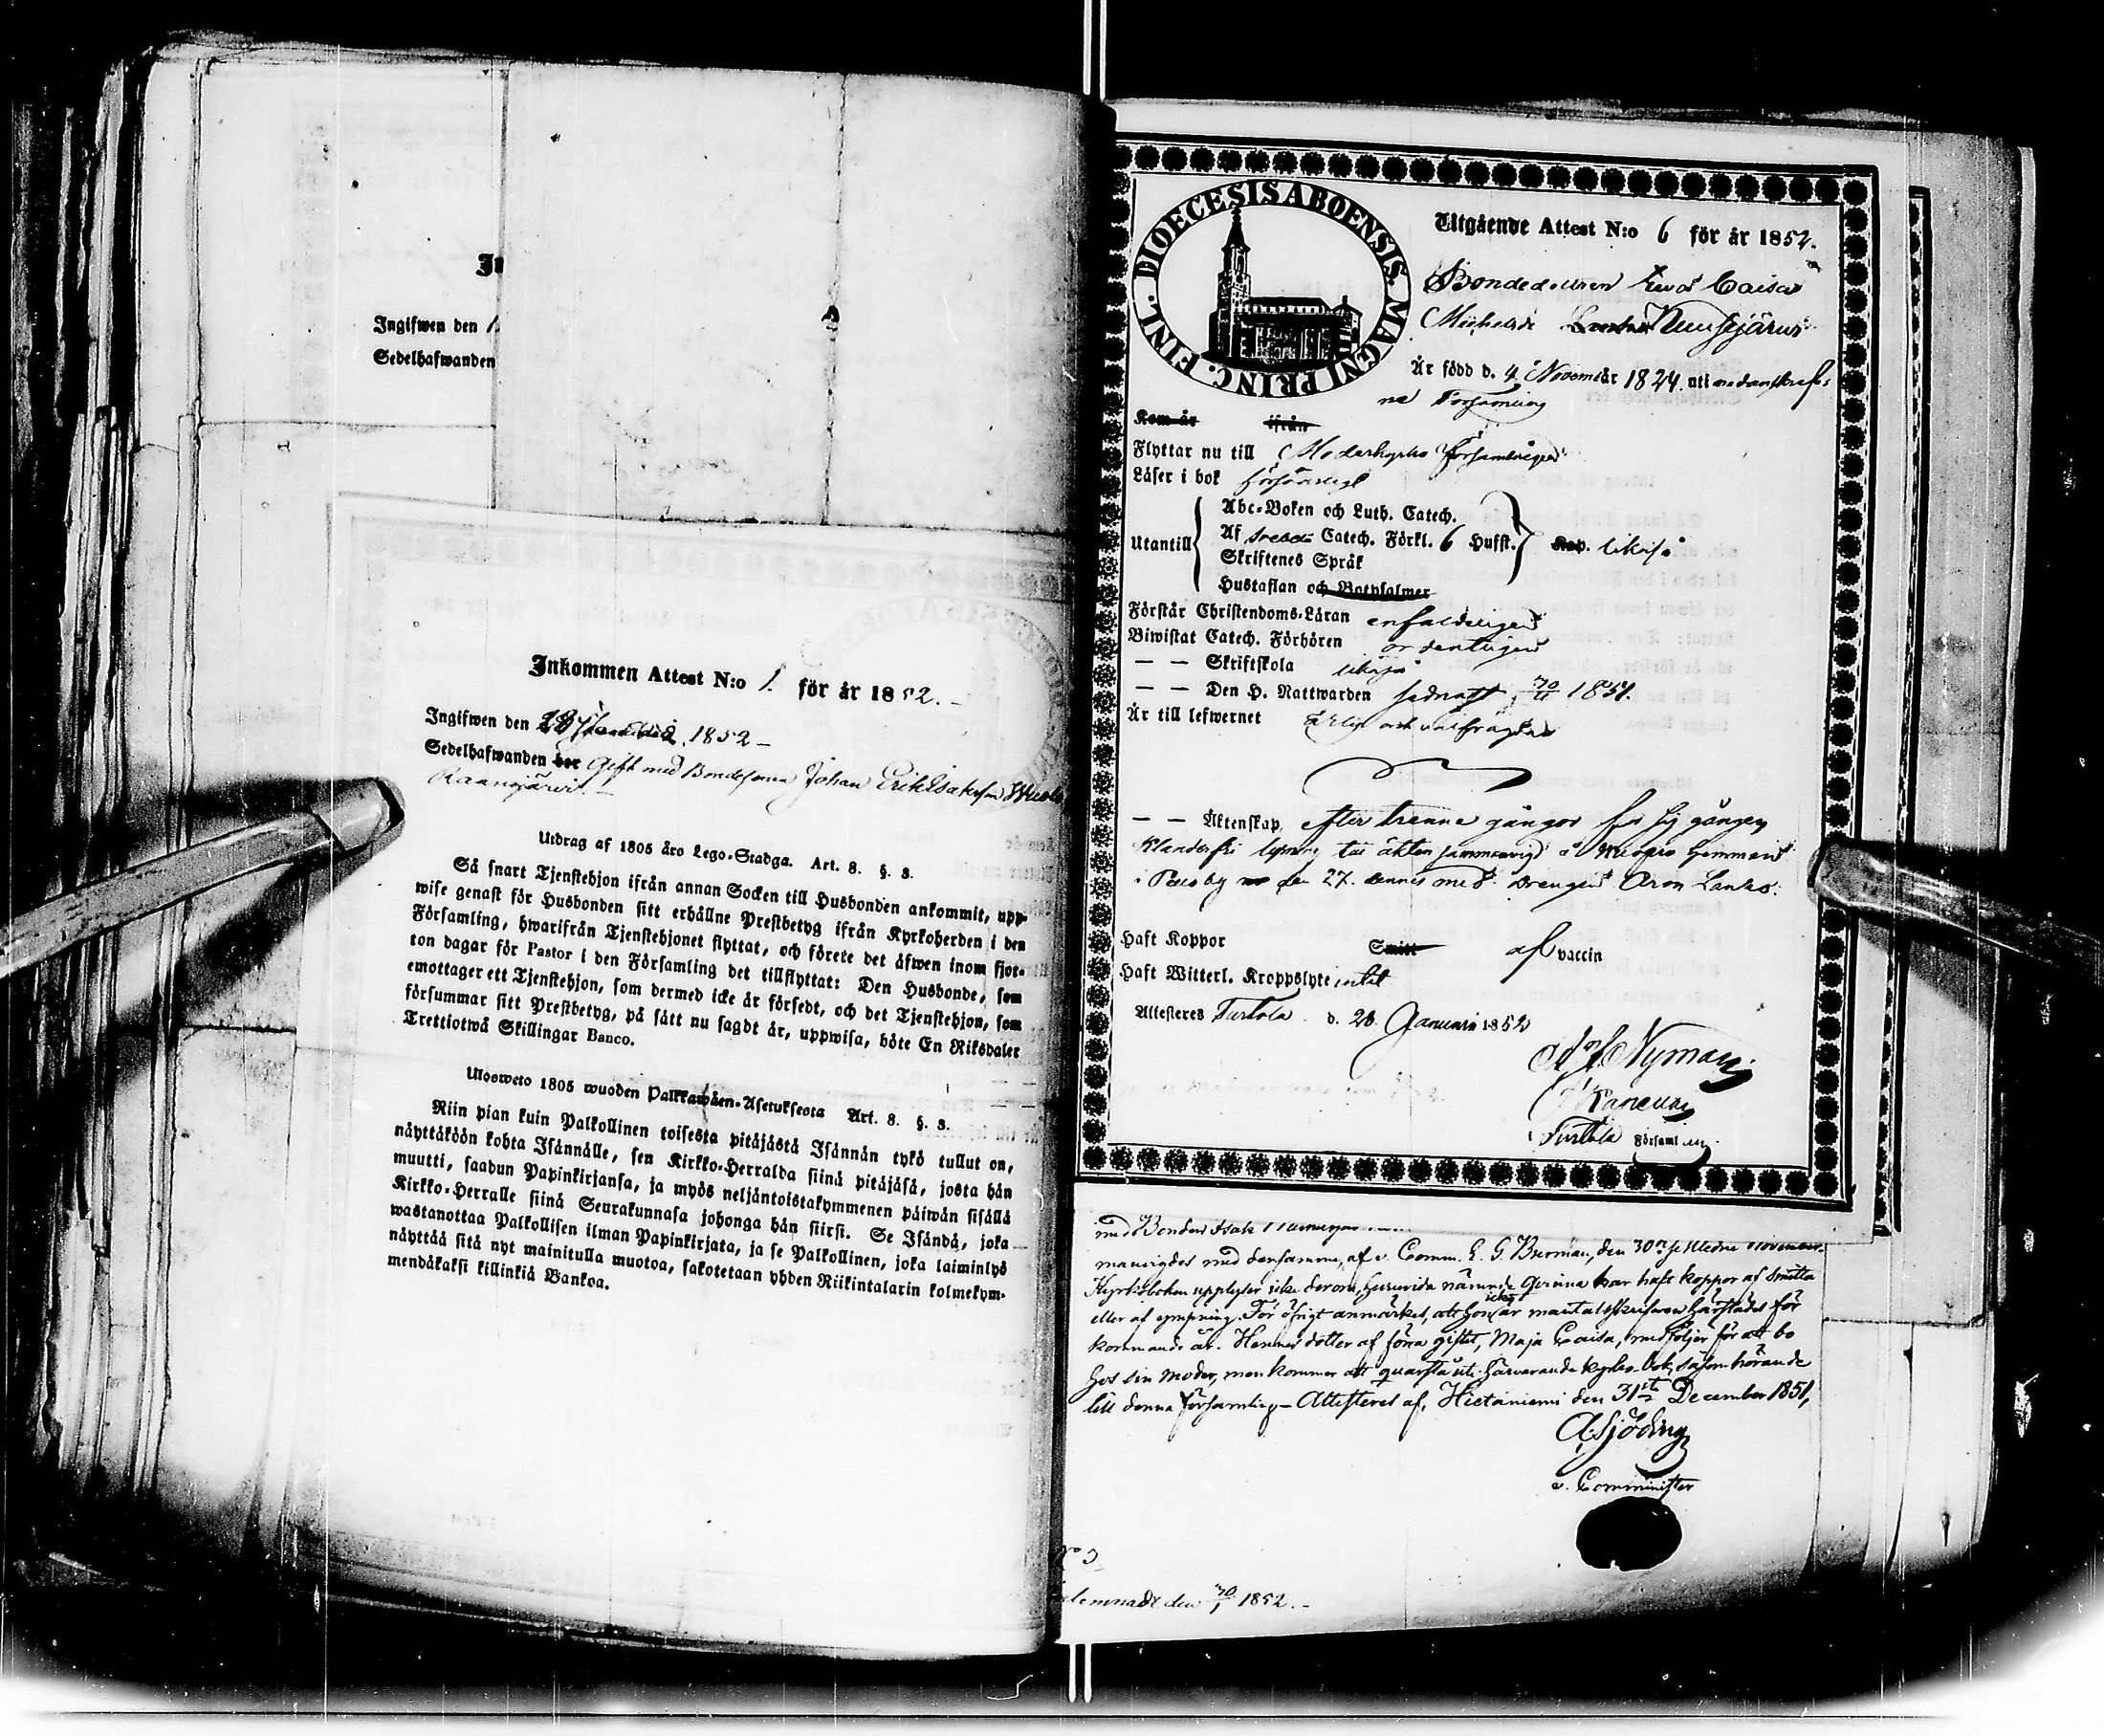 In
Ingifwen den 1
Sedelhafwanden
Inkommen Attest N:o 1. för år 1852.
Ingifwen den 28 Januarii 1852
Sedelhafwanden bor Gift med Bondesonen Johan Erik Isaksson
Kaanujärvi.
Utdrag af 1805 års Lego-Stadga. Art. 8. §. 3.
Så snart Tjenstehjon ifrån annan Socken till Husbonden ankommit, upp-
wise genast för Husbonden sitt erhållne Prestbetyg ifrån Kyrkoherden i den
Församling, hwarifrån Tjenstehjonet flyttat, och förete det äfwen inom fjor-
ton dagar för Pastor i den Församling det tillflyttat: Den Husbonde, som
emottager ett Tjenstehjon, som dermed icke är försedt, och det Tjenstehjon, som
försummar sitt Prestbetyg, på sätt nu sagdt är, uppwisa, böte En Riksdaler
Trettiotwå Skillingar Banco.
Ulosweto 1805 wuoden Palkkawäen-Asetuksesta Art. 8. §. 3.
Niin pian kuin Palkollinen toisesta pitäjästä Isännän tykö tullut on,
näyttäköön kohta Isännälle, sen Kirkko-Herralda siinä pitäjäsä, josta hän
muutti, saadun Papinkirjansa, ja myös neljäntoistakymmenen päiwän sisällä
Kirkko-Herralle siinä Seurakunnasa johonga hän siirsi. Se Isändä, joka
wastanottaa Palkollisen ilman Papinkirjata, ja se Palkollinen, joka laiminlyö
näyttää sitä nyt mainitulla muotoa, sakotetaan yhden Riikintalarin kolmekym-
mendäkaksi killinkiä Bankoa.
FINL. DIOECESIS ABOENSIS. MAGNI PRINC.
Utgående Attest N:o 6 för år 1852.
Bondedottren Eva Caisa
Michelsdr Neusajärvi
Är född d. 4 Novem år 1824. uti nedanskref-
ne Församling
Kom år ifrån
Flyttar nu till Moderkyrko församlingen
Läser i bok försvarligt
Utantill
Abc-Boken och Luth. Catech.
Af Svebelii Catech. Förkl. 6 Hufst.
Skriftenes Språk
Hustaflan och Botpsalmer
Kap. likaså
Förstår Christendoms-Läran enfaldeligen
Biwistat Catech. Förhören ordentligen
— — Skriftskola likaså
— — Den H. Nattwarden sednast 1851.
Är till lefwernet Ärlig och välfrägdad
— — Äktenskap, efter trenne gångor för sig gången
klanderfri lysning till äkten sammanvigd å hemmanet
i den 27. dennes med drengen Aron Lanks.
Haft Koppor Smitt af vaccin
Haft Witterl. Kroppslyte intet
Attesteras Turtola d. 28. Januarii 1852
Ad. Nyman
Kapellan
i Turtola Församling.
med Bonden Isak
manvigdes med densamme, af v. Comm. E. G. Burman, den 30de sistledne November.
Kyrkoboken upplyser icke derom, huruvida nämnde qvinna har haft koppor af smitta
eller af ympning. För öfrigt anmärkes, att hon icke är mantalsskrifven härstädes för
kommande år. Hennes dotter af förra giftet, Maja Caisa, medföljer för att bo
hos sin moder, men kommer att qvarstå uti härvarande kyrko-bok, såsom hörande
till denna församling – Attesteras af, Hietaniemi den 31ste December 1851,
A. Sjöding
v. Comminister
No 3
lemnadt den 30/1 1852.